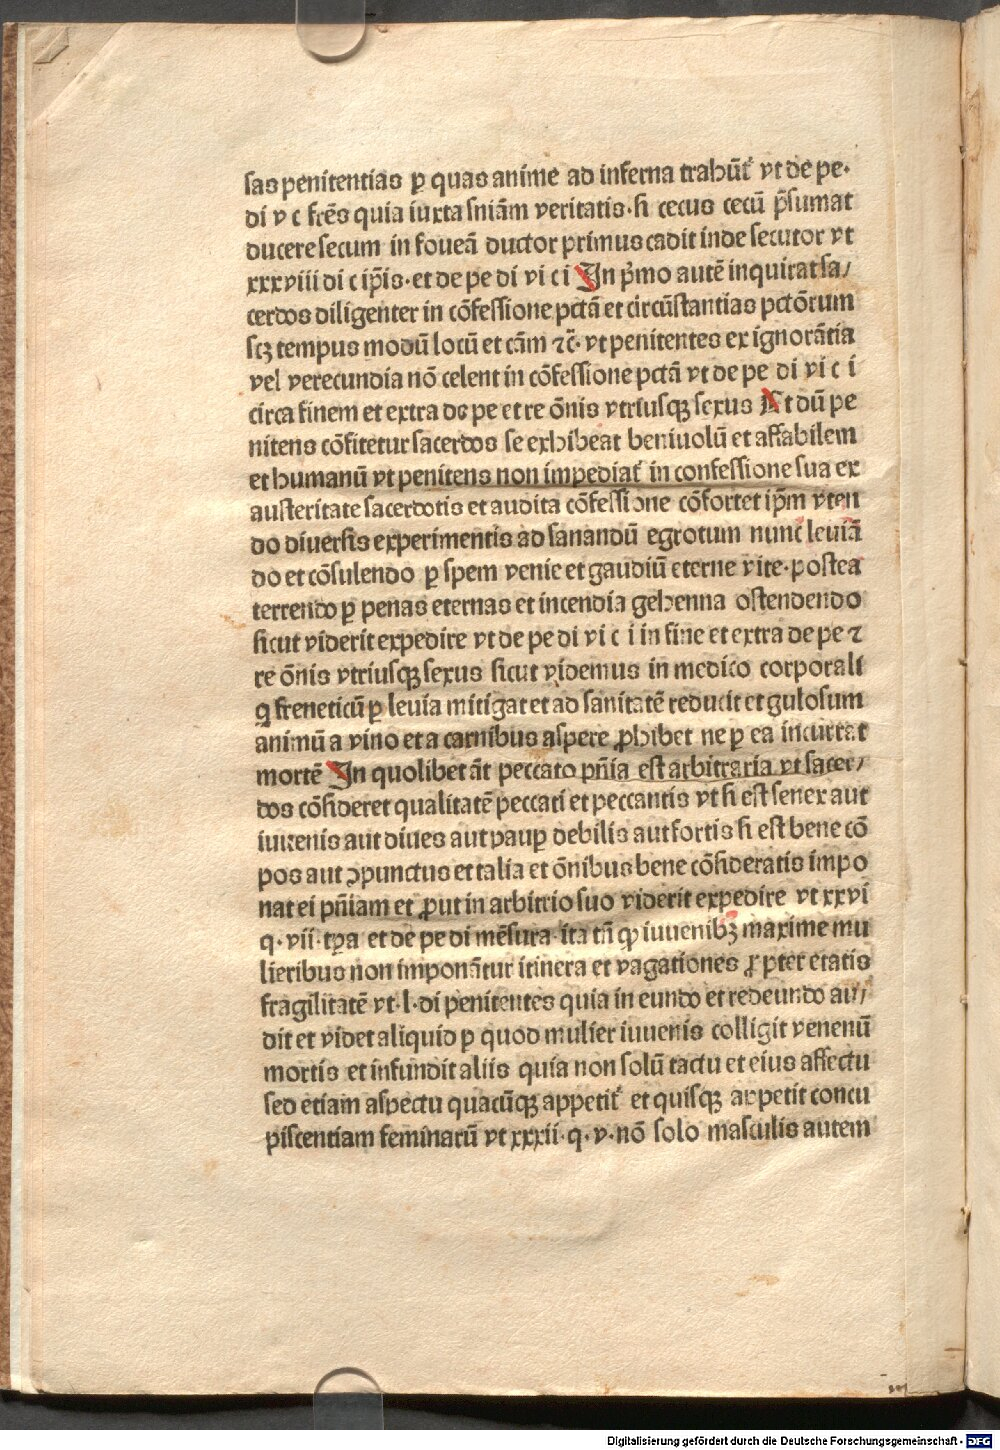 sas penitentias ꝑ quas anime ad inferna trahūt᷑ vt de pe·
di v c frēs quia iuxta sniām veritatis·si cecus cecū p̄sumat
ducere secum in foueā ductor primus cadit inde secutor vt
xxxviii di c ip̄is·et de pe di vi c i In p̄mo autē inquirat sa/
cerdos diligenter in cōfessione pctā et circūstantias pctōrum
scꝫ tempus modū locū et cām ⁊c̄· vt penitentes ex ignorātia
vel verecundia nō celent in cōfessione pctā vt de pe di vi c i
circa finem et extra de pe et re ōnis vtriusqꝫ sexus Et dū pe
nitens cōfitetur sacerdos se exhibeat beniuolū et affabilem
et humanū vt penitens non impediat᷑ in confessione sua ex
austeritate sacerdotis et audita cōfessione cōfortet ip̄m vten
do diuersis experimentis ad sanandū egrotum nunc leuiā
do et cōsulendo ꝑ spem venie et gaudiū eterne vite·postea
terrendo ꝑ penas eternas et incendia gehenna ostendendo
sicut viderit expedire vt de pe di vi c i in fine et extra de pe ⁊
re ōnis vtriusqꝫ sexus sicut videmus in medico corporali
q freneticū ꝑ leuia mitigat et ad sanitatē reducit et gulosum
animū a vino et a carnibus aspere ꝓhibet ne ꝑ ea incurrat
mortē In quolibet āt peccato pn̄ia est arbitraria vt sacer/
dos cōsideret qualitatē peccati et peccantis vt si est senex aut
iuuenis aut diues aut pauꝑ debilis aut fortis si est bene cō
pos aut ↄpunctus et talia et ōnibus bene cōsideratis impo
nat ei pn̄iam et ꝓut in arbitrio suo viderit expedire vt xxvi
q·vii·tꝑa et de pe di mēsura·ita tn̄ ꝙ iuuenibꝫ maxime mu
lieribus non imponātur itinera et vagationes ꝓpter etatis
fragilitatē vt·l·di penitentes quia in eundo et redeundo au/
dit et videt aliquid ꝑ quod mulier iuuenis colligit venenū
mortis et infundit aliis quia non solū tactu et eius affectu
sed etiam aspectu quacūqꝫ appetit᷑ et quisqꝫ appetit concu
piscentiam feminarū vt xxxii·q·v·nō solo masculis autem
Digitalisierung gefördert durch die Deutsche Forschungsgemeinschaft - DFG